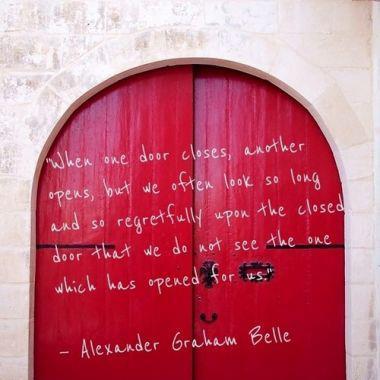 "When one door closes, another
opens, but we often look so long
and so regretfully upon the closed
door that we do not see the one
which has opened for us."
– Alexander Graham Belle